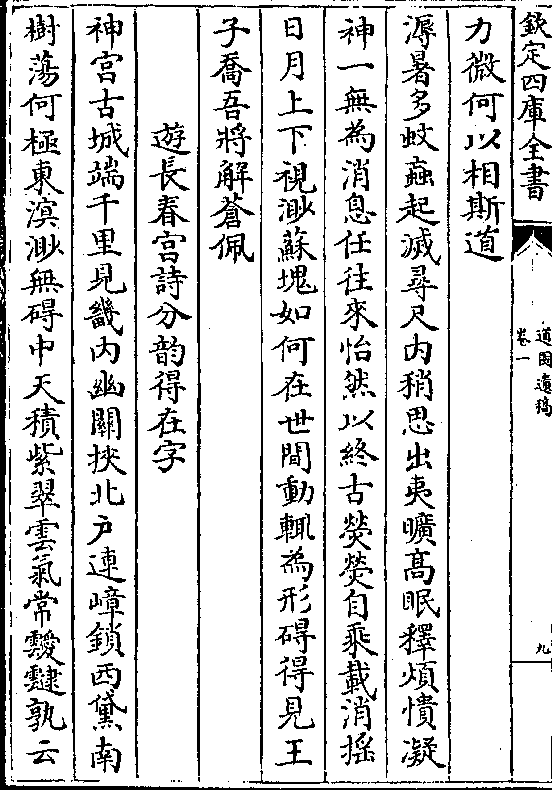 欽定四庫全書
道園遺稿
卷一
九
力微何以相斯道
溽暑多蚊蝱起滅尋尺内稍思出夷曠髙眠釋煩憒凝
神一無為消息任往來怡然以終古熒熒自乘載消揺
日月上下視渺蘇塊如何在世間動輒為形碍得見王
子喬吾將解蒼佩
遊長春宫詩分韵得在字
神宫古城端千里見畿内幽關挾北户連嶂鎖西黛南
樹蕩何極東溟渺無碍中天積紫翠雲氣常靉靆孰云